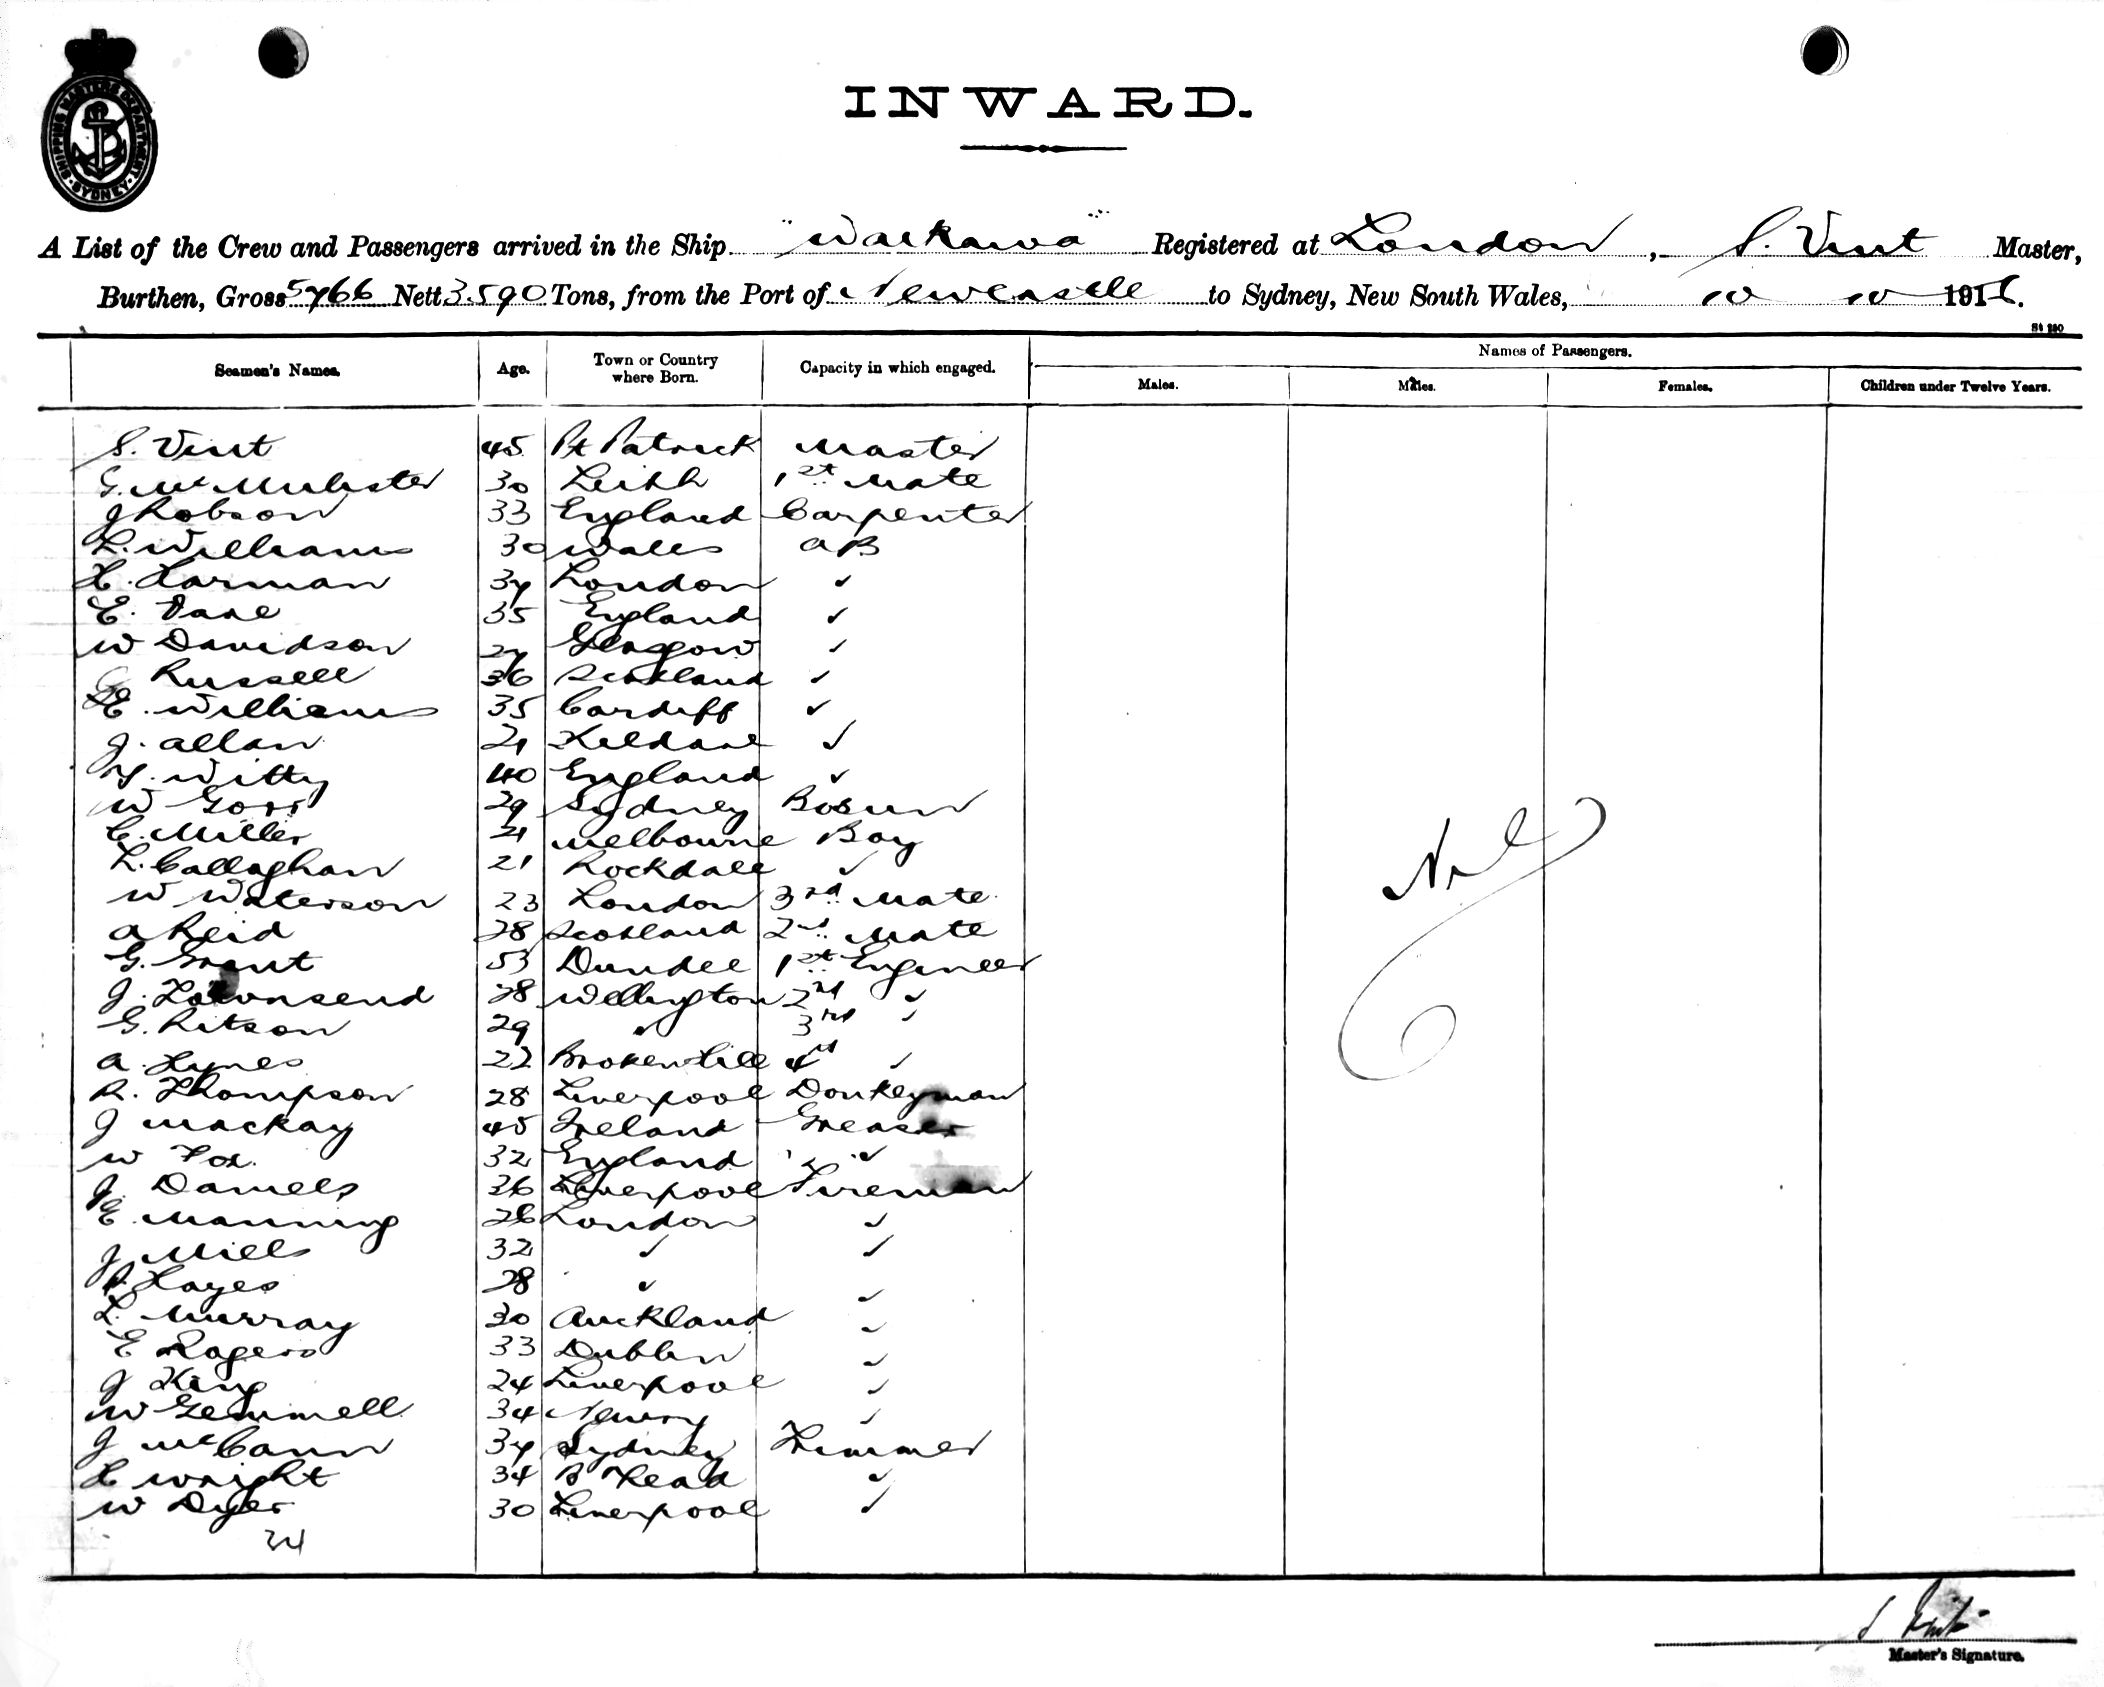 SHIPPING MASTERS DEPARTMENT SYDNEY
INWARD.
A List of the Crew and Passengers arrived in the Ship "Waikawa" Registered at London, S. Vint Master,
Burthen, Gross 5766 Nett 3.590 Tons, from the Port of Newcastle to Sydney, New South Wales, 10 10 1916.
St 180
Seamen's Names. Age. Town or Country where Born. Capacity in which engaged. Names of Passengers.
Males. Males. Females. Children under Twelve Years.
S. Vint 45 Pt Patrick Master
G. McMulister 30 Leith 1st Mate
J Robson 33 England Carpenter
L. Williams 30 Wales AB
H. Harman 37 London ✓
E. Dare 35 England ✓
W Davidson 27 Glasgow ✓
Russell 36 Scotland ✓
E. Williams 35 Cardiff ✓
J. Allan 21 Kildare ✓
Witty 40 England ✓
W Goss 29 Sydney Bosun
C. Miller 21 Melbourne Boy
L. Callaghan 21 Rockdale ✓
W Waterson 23 London 3rd Mate
A Reid 28 Scotland 2nd Mate
G. Grant 53 Dundee 1st Engineer
J. Townsend 28 Wellington 2nd ✓
G. Ritson 29 ✓ 3rd ✓
A. Hynes 22 Broken Hill 4th ✓
R. Thompson 28 Liverpool Donkeyman
J Mackay 45 Ireland Greaser
W Fox 32 England ✓
J. Daniels 36 Liverpool Fireman
E. Manning 28 London ✓
J Mills 32 ✓ ✓
P. Hayes 28 ✓ ✓
L. Murray 30 Auckland ✓
E Rogers 33 Dublin ✓
J King 24 Liverpool ✓
W Gemmell 34 Newry ✓
J McCann 37 Sydney Trimmer
H Wright 34 B Head ✓
W Dyer 30 Liverpool ✓
34
Nil
S Vint
Master's Signature.